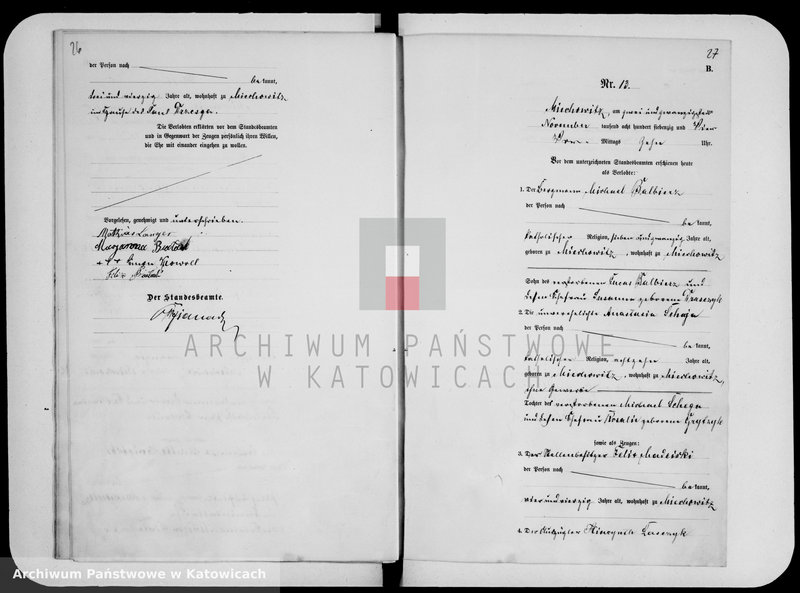 26
der Person nach
be kannt,
drei und vierzig Jahre alt, wohnhaft zu Miechowitz
im Hause des
Die Verlobten erklärten vor dem Standesbeamten
und in Gegenwart der Zeugen persönlich ihren Willen,
die Ehe mit einander eingehen zu wollen.
Vorgelesen, genehmigt und unterschrieben.
Mathias
+++
Felix
Der Standesbeamte.
27
B.
Nr. 13.
Miechowitz, am zwei und zwanzigsten
November tausend acht hundert siebenzig und vier
Vor Mittags Zehn Uhr.
Vor dem unterzeichneten Standesbeamten erschienen heute
als Verlobte:
1. Der Bergmann Michael Kalbierz
der Person nach
be kannt,
katholischer Religion, sieben und zwanzig Jahre alt,
geboren zu Miechowitz, wohnhaft zu Miechowitz
Sohn des verstorbenen Lucas Kalbierz und
dessen Ehefrau Susanna geborene
2. Die unverehelichte Anastasia
der Person nach
be kannt,
katholischer Religion, achtzehn Jahre alt,
geboren zu Miechowitz, wohnhaft zu Miechowitz,
ohne Gewerbe
Tochter des verstorbenen Michael
und dessen Ehefrau Rosalie geborene
sowie als Zeugen:
3. Der Stellenbesitzer Felix
der Person nach
be kannt,
vier und vierzig Jahre alt, wohnhaft zu Miechowitz
4. Der Auszügler
ARCHIWUM PAŃSTWOWE
W KATOWICACH
Archiwum Państwowe w Katowicach